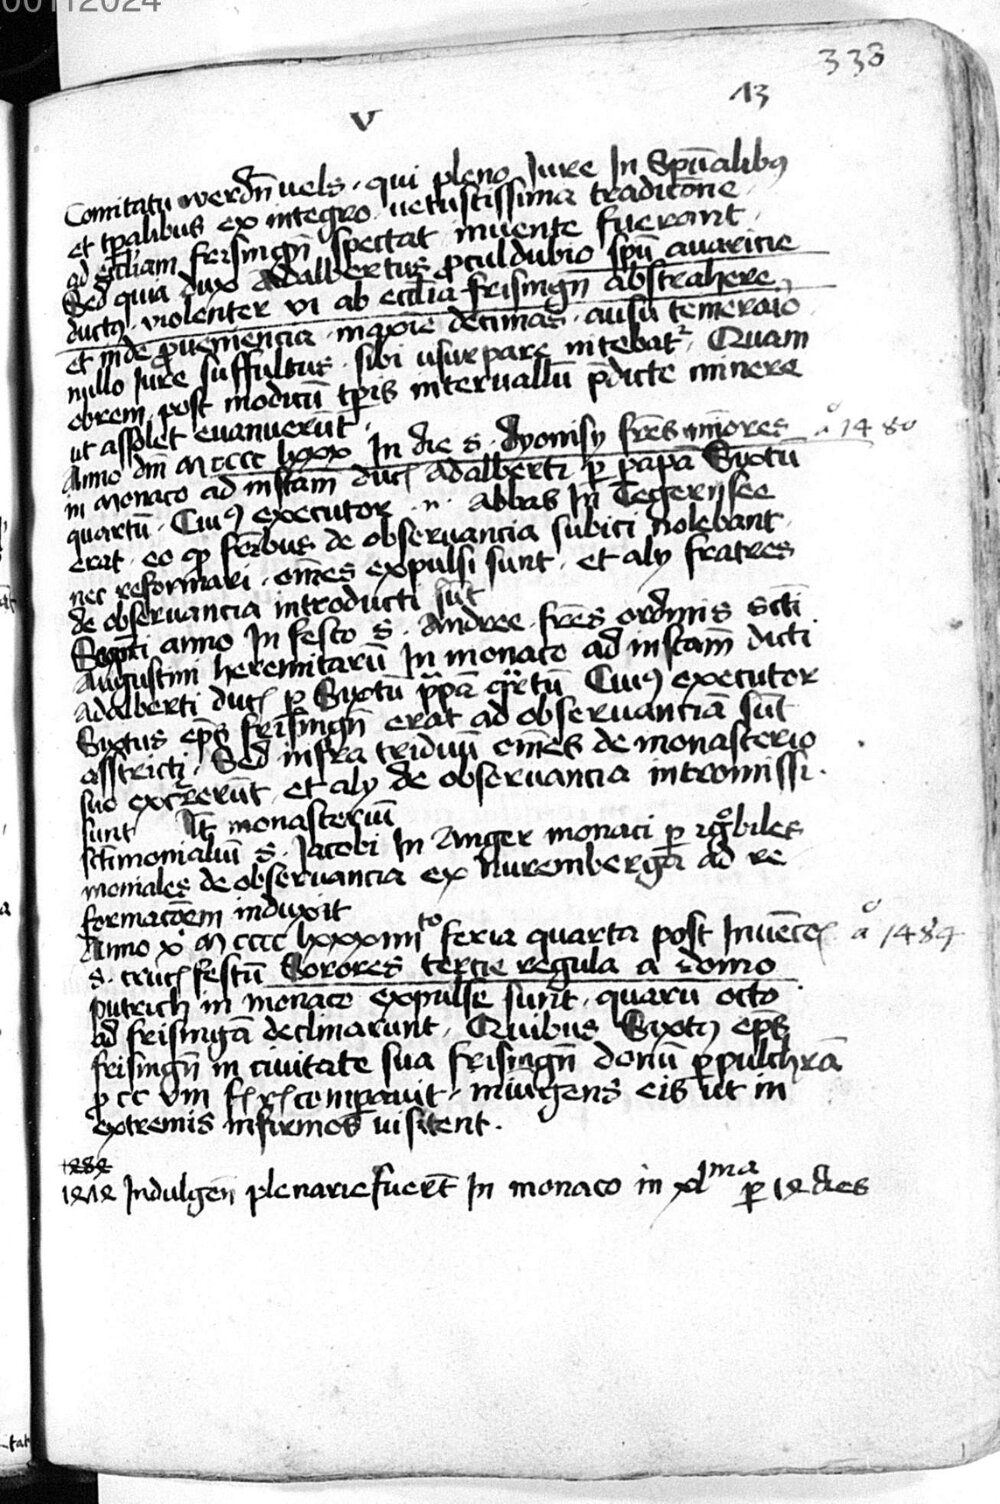 00112024
333
13
V
Comitatu werdn̄uels · qui pleno Jure In Spūalibꝫ
et tp̄alibus ex integro · uetustissima tradicōne ·
ad eccliam frisingn̄ spectat · inuente fuerant ·
Sed quia dux Adalbertus proculdubio spū auaricie
ductꝫ · violenter vi ab eccl̄ia frisingn̄ abstrahere
et inde proueniencia · maxīe decimas · ausu temerario
nullo Jure suffultus · sibi usurpare nitebat᷑ · Quam
obrem post modicū tp̄is interuallū p̄dicte minere
ut assolet euanuerūt ·
Anno dm̄ M cccc lxxx In die s · dyonisy fr̄es mīores a° 1480
in Monaco ad instam̄ duc̄ Adalberti p̱ papā Sixtū
quartū · Cuiꝫ executor · n · abbas In Tegernsee
erat · eo ꝙ fr̄ibus de obseruancia subici nolebant ·
nec reformari · om̄es expulsi sunt · et aly fratres
de obseruancia introducti sūt
anno In festo s · Andree fr̄es ordinis scti
Augustini heremitarū In monaco ad instam̄ dicti
Adalberti duc̄ p̱ Sixtū p̄pā qrtū Cuiꝫ executor
Sixtus ep̄s frisingn̄ erat ad obseruanciā sūt
asstricti · Sed infra triduū om̄es de monasterio
suo exierūt · et aly de obseruancia intromissi ·
sunt It̄ monasteriū
sctīmonialiū s · Jacobi In Anger monaci p̱
moniales de obseruancia ex Nurembergā ad re
formacōem induxit
Anno x̄ M cccc lxxxiiii to feria quarta post Inuēcōe᷑ a° 1484
s · cruc̄ festū Sorores tercie regula a domo
putrich in monaco expulse sunt · quarū octo
ad frisingā declinarunt · Quibus Sixtꝫ ep̄s
frisingn̄ in ciuitate sua frisingn̄ domū p̱pulchrā
ꝓ cc viii comparauit · miūgens eis ut in
extremis infirmos visitent ·
1282
1212 Indulgen̄ plenarie fuer̄t In monaco in xl ma p̱ 12 dies